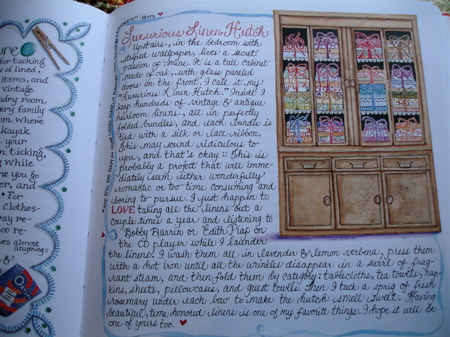 ore
for tacking
s of lined,
items, and
vintage
ndry room
very family
om where
Kayak
your
n ticking,
While
me you go
er, and
For
Clothes-
may re-
oo re-
almost anything
Luxurious Linen Hutch
Upstairs, in the bedroom with
striped wallpaper, lives a secret
passion of mine. It is a tall cabinet
made of oak, with glass paneled
doors on the front. I call it my
"Luxurious Linen Hutch." Inside I
keep hundreds of vintage & antique
heirloom linens, all in perfectly
folded bundles, and each bundle is
tied with a silk or lace ribbon.
This may sound ridiculous to
you, and that's okay :: This is
probably a project that will imme-
diately seem either wonderfully
romantic or too time consuming and
boring to pursue. I just happen to
LOVE taking all the linens out a
couple times a year and listening to
Bobby Darrin or Edith Piaf on
the CD player while I launder
the linens! I wash them all in lavender & lemon verbena, press them
with a hot iron until all the wrinkles disappear in a swirl of frag-
rant steam, and then fold them by category: tablecloths, tea towels, nap-
kins, sheets, pillowcases, and guest towels. Then I tuck a sprig of fresh
rosemary under each bow to make the hutch smell sweet. Having
beautiful, time honored linens is one of my favorite things. I hope it will be
one of yours too.